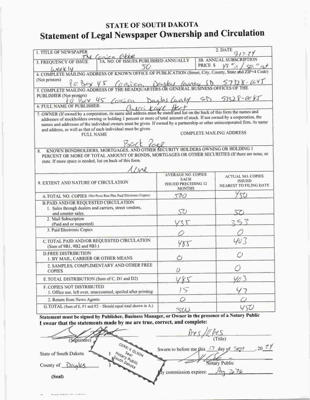 STATE OF SOUTH DAKOTA
Statement of Legal Newspaper Ownership and Circulation
1. TITLE OF NEWSPAPER
The Corsica Globe
2. DATE
3. FREQUENCY OF ISSUE
Weekly
3A. NO. OF ISSUES PUBLISHED ANNUALLY
50
3B. ANNUAL SUBSCRIPTION
PRICE $
4. COMPLETE MAILING ADDRESS OF KNOWN OFFICE OF PUBLICATION (Street, City, County, State and ZIP-4 Code)
(Not printers)
PO Box 45 Corsica Douglas County SD 57328-0045
5. COMPLETE MAILING ADDRESS OF THE HEADQUARTERS OR GENERAL BUSINESS OFFICES OF THE
PUBLISHER (Not printers)
PO Box 45 Corsica Douglas County SD 57328-0045
6. FULL NAME OF PUBLISHER:
7. OWNER (If owned by a corporation, its name and address must be stated and list on the back of this form the names and
addresses of stockholders owning or holding 1 percent or more of total amount of stock. If not owned by a corporation, the
names and addresses of the individual owners must be given. If owned by a partnership or other unincorporated firm, its name
and address, as well as that of each individual must be given.
FULL NAME
COMPLETE MAILING ADDRESS
Back Page
8. KNOWN BONDHOLDERS, MORTGAGES, AND OTHER SECURITY HOLDERS OWNING OR HOLDING 1
PERCENT OR MORE OF TOTAL AMOUNT OF BONDS, MORTGAGES OR OTHER SECURITIES (If there are none, so
state. If more space is needed, list on back of this form.
None
9. EXTENT AND NATURE OF CIRCULATION
AVERAGE NO. COPIES
EACH
ISSUED PRECEDING 12
MONTHS
ACTUAL NO. COPIES
ISSUED
NEAREST TO FILING DATE
A. TOTAL NO. COPIES (Net Press Run Plus Paid Electronic Copies)
500
450
B. PAID AND/OR REQUESTED CIRCULATION
1. Sales through dealers and carriers, street vendors,
and counter sales.
50
50
2. Mail Subscription
(Paid and or requested)
435
353
3. Paid Electronic Copies
0
0
C. TOTAL PAID AND/OR REQUESTED CIRCULATION
(Sum of 9B1, 9B2 and 9B3)
485
403
D. FREE DISTRIBUTION
1. BY MAIL, CARRIER OR OTHER MEANS
0
0
2. SAMPLES, COMPLIMENTARY AND OTHER FREE
COPIES
0
0
E. TOTAL DISTRIBUTION (Sum of C, D1 and D2)
485
403
F. COPIES NOT DISTRIBUTED
1. Office use, left over, unaccounted, spoiled after printing
15
47
2. Return from News Agents
0
0
G. TOTAL (Sum of E, F1 and F2 - Should equal total shown in A.)
500
450
Statement must be signed by Publisher, Business Manager, or Owner in the presence of a Notary Public
I swear that the statements made by me are true, correct, and complete:
(Signature)
(Title)
Sworn to before me this 17 day of Sept 20 24
State of South Dakota
Notary Public
County of Douglas
My commission expires:
(Seal)
NOTARY PUBLIC
SOUTH DAKOTA